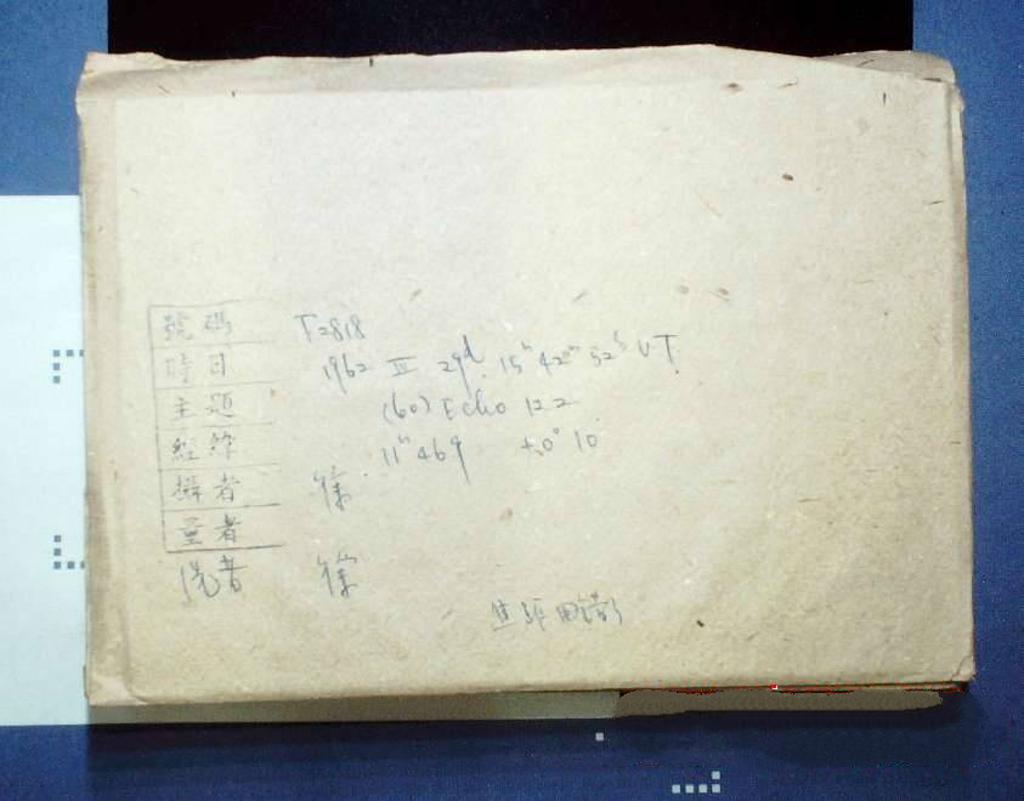 號碼 T2818
時日 1962 III 29ᵈ 15ʰ 42ᵐ 52ˢ U.T.
主題 (60) Echo 12.2
經緯 11ʰ 46.9 +0° 10
攝者 徐
量者
洗者 徐
焦距用錯